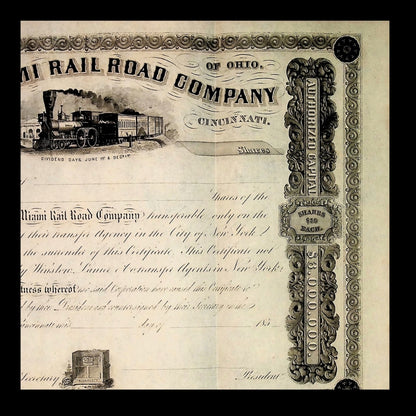 OF OHIO.
MI RAIL ROAD COMPANY
CINCINNATI.
DIVIDEND DAYS, JUNE 1ST & DECR 1ST
Shares
Shares of the
Miami Rail Road Company transferable only on the
their transfer Agency in the City of New York
the surrender of this Certificate. This Certificate not
by Winslow, Lanier & Co transfer Agents in New York.
ness whereof the said Corporation have caused this Certificate to
by their President and countersigned by their Secretary in the
Cincinnati this day of 185
Secretary President
AUTHORIZED CAPITAL
SHARES
$50
EACH.
$3,000,000.